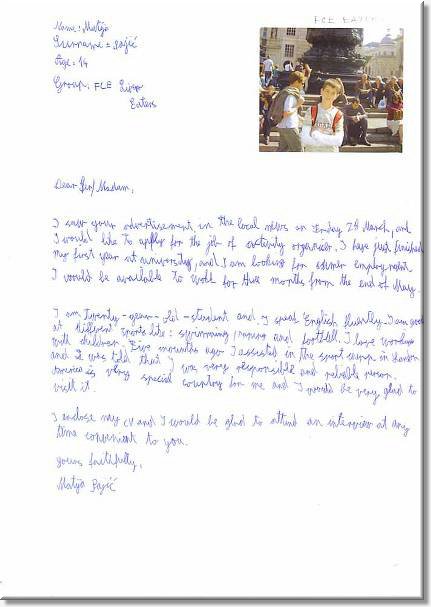 FCE EATERS
Name: Matija
Surname: Pajić
Age: 14
Group: FCE Liver
Eaters
Dear Sir/Madam,
I saw your advertisement in the local news on Friday 2nd March, and
I would like to apply for the job of activity organiser. I have just finished
my first year at university, and I am looking for summer employment.
I would be available to work for three months from the end of May.
I am twenty-year-old-student and I speak English fluently. I am good
at different sports like: swimming, running and football. I love working
with children. Five months ago I assisted in the sport camp in London
and I was told that I was very responsible and reliable person.
America is very special country for me and I would be very glad to
visit it.
I enclose my CV and I would be glad to attend an interview at any
time convenient to you.
Yours faithfully,
Matija Pajić